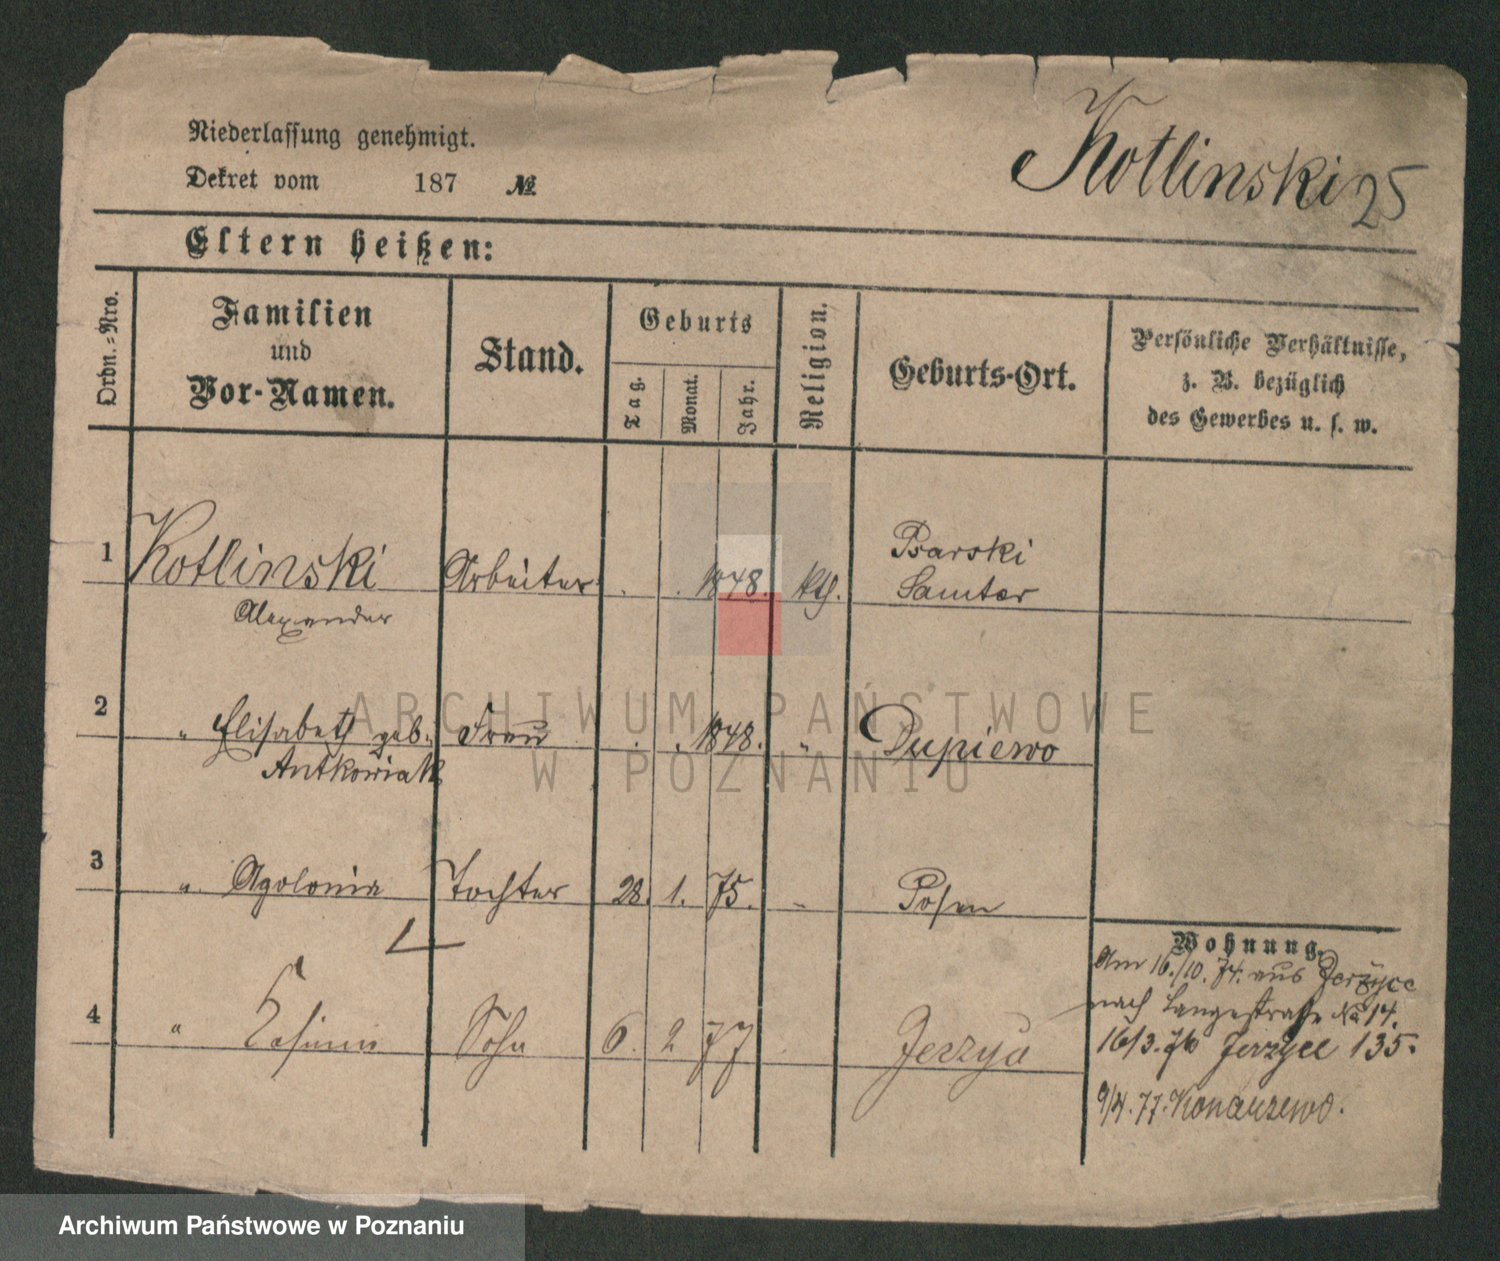 Niederlassung genehmigt.
Dekret vom 187 №
Kotlinski 25
Eltern heißen:
Ordn.-Nro.
Familien
und
Vor-Namen.
Stand.
Geburts
Tag.
Monat.
Jahr.
Religion.
Geburts-Ort.
Persönliche Verhältnisse,
z. B. bezüglich
des Gewerbes u. s. w.
1 Kotlinski Arbeiter . . 1848. kth. Psarski
Samter
Alexander
2 " Elisabeth geb. Frau . . 1848. " Dupiewo
Antkowiak
3 " Apolonia Tochter 28. 1. 75. " Posen
4 " Casimir Sohn 6. 2 77 Jerzyce
Wohnung.
Am 16./10. 74. aus Jerzyce
nach Langestraße No 14.
16/3. 76 Jerzyce 135.
9/4. 77. Konarzewo.
ARCHIWUM PAŃSTWOWE
W POZNANIU
Archiwum Państwowe w Poznaniu